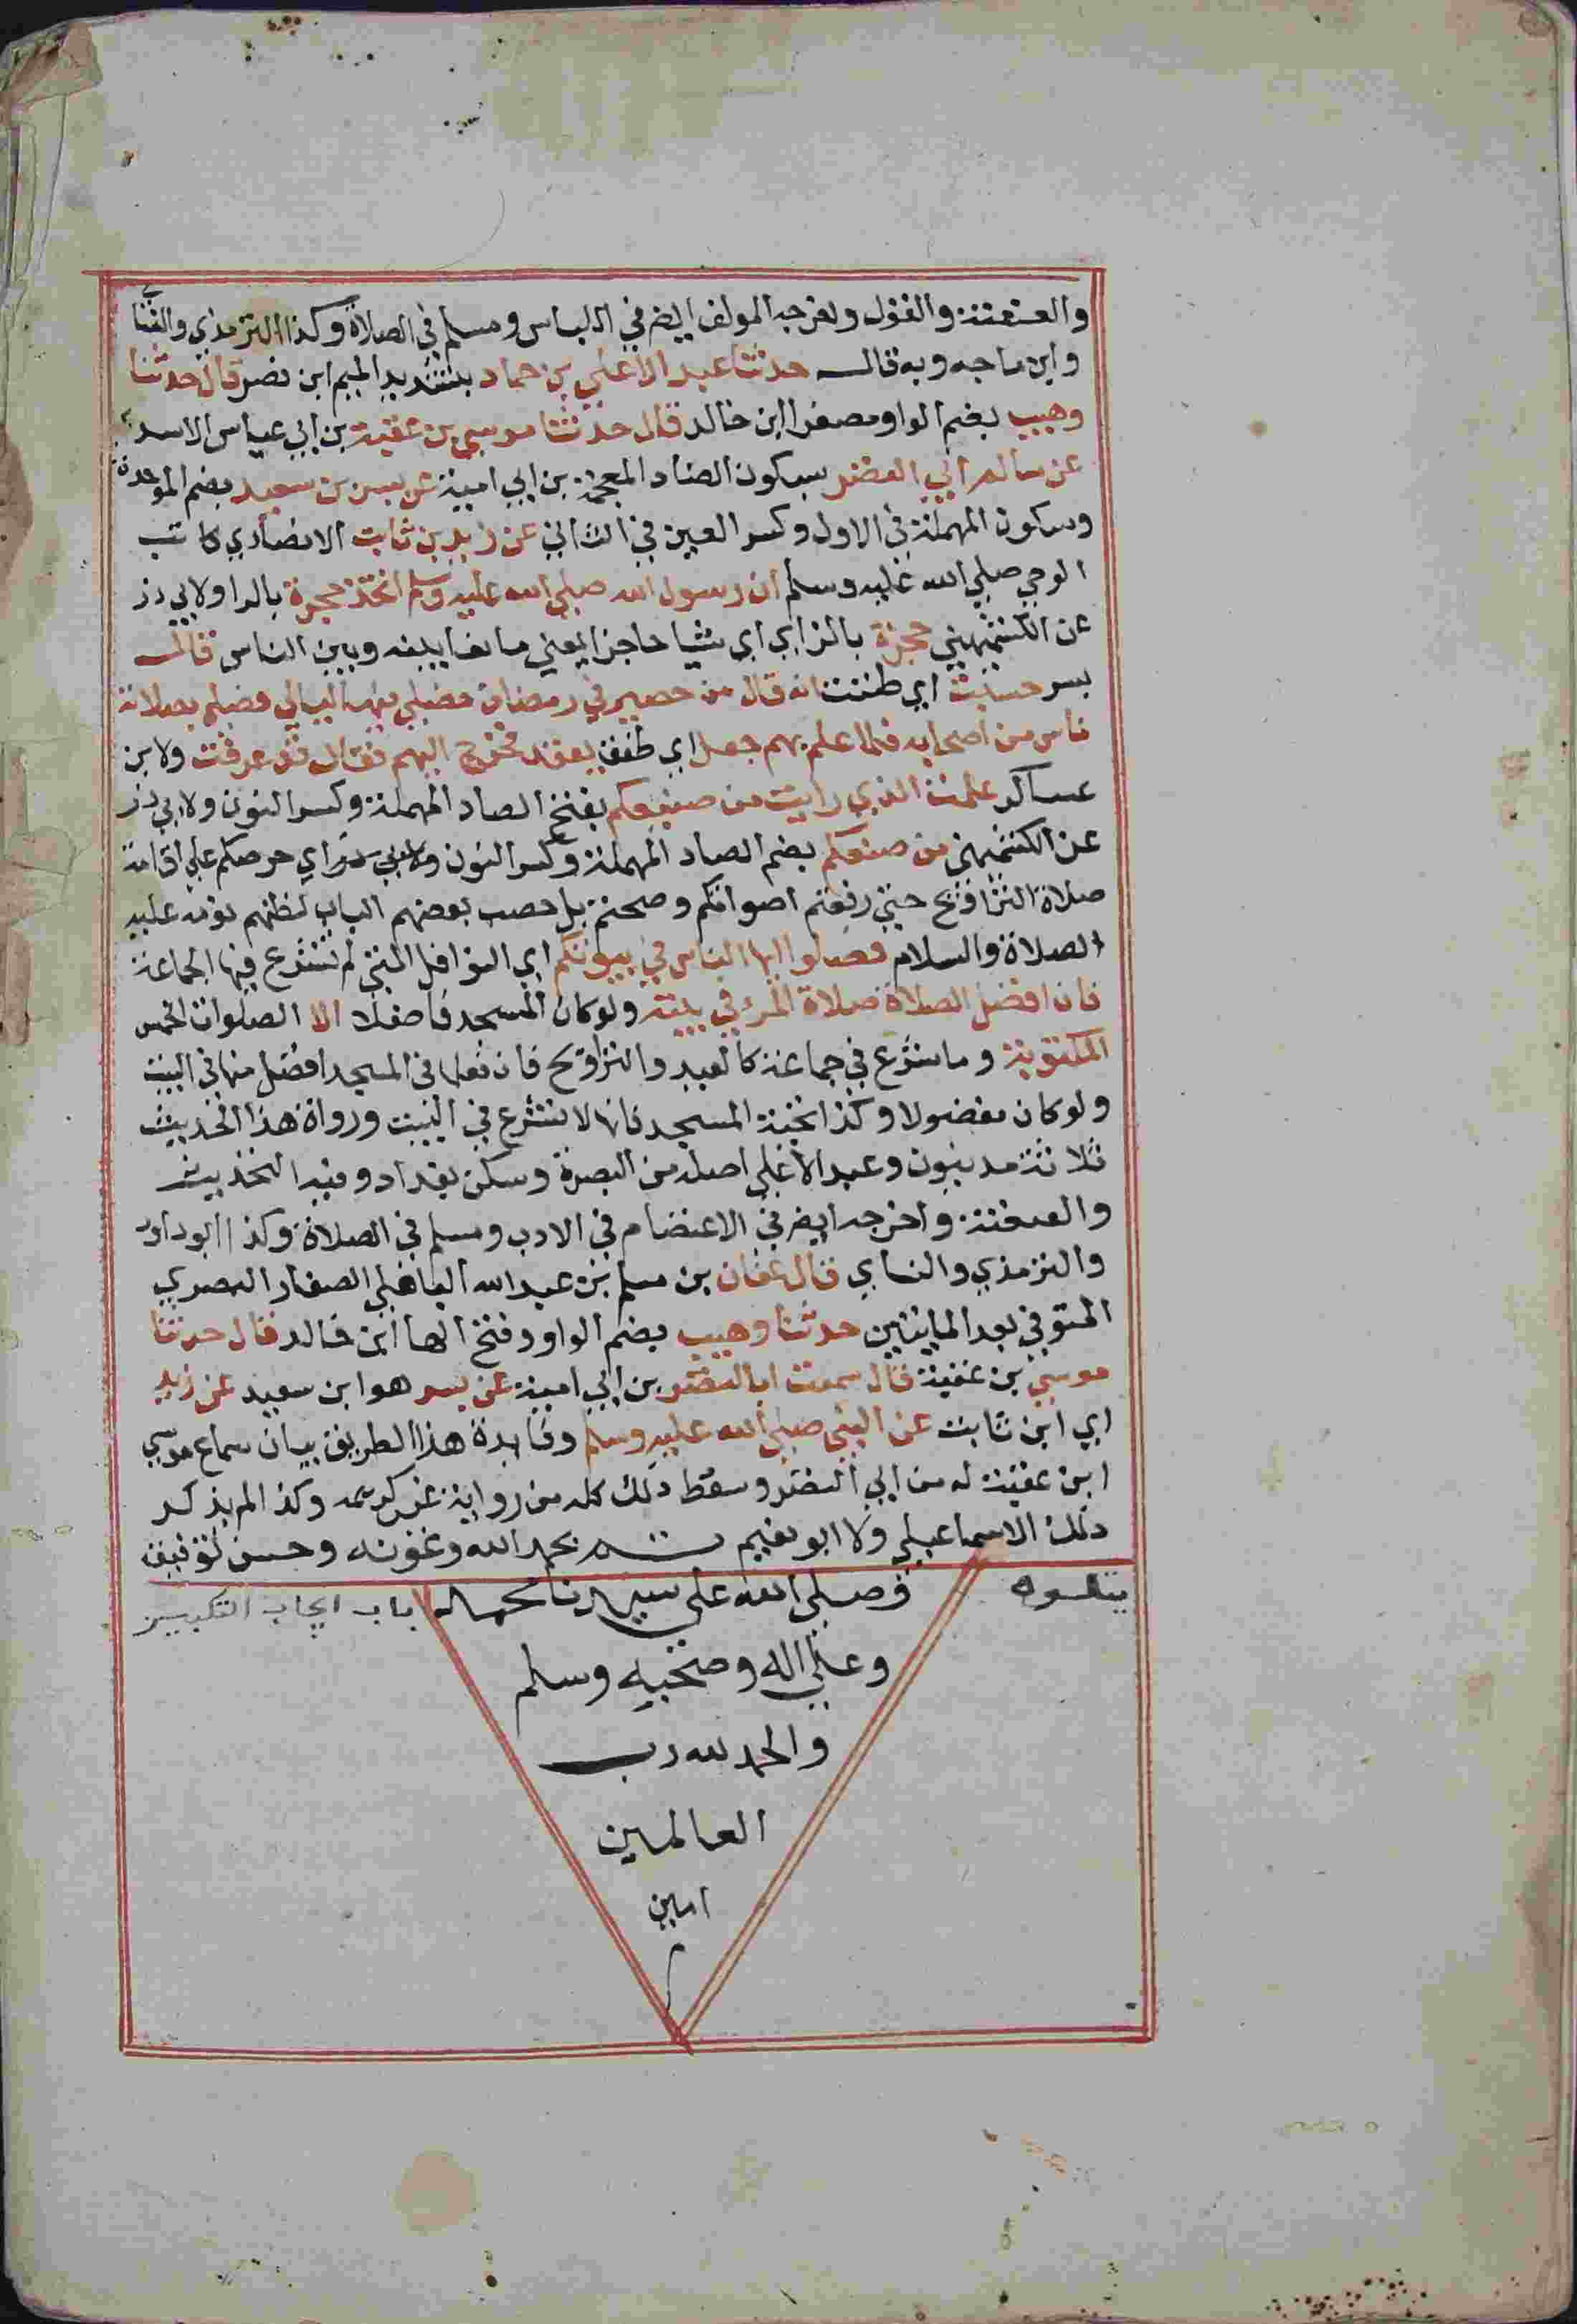 والعنعنة والقول واخرجه المولف ايضا في اللباس ومسلم في الصلاة وكذا الترمذي والنسا
وابن ماجه وبه قال حدثنا عبد الاعلي بن حماد بتشديد الميم ابن نصر قال حدثنا
وهيب بضم الواو مصغرا ابن خالد قال حدثنا موسي بن عقبة بن ابي عياش الاسدي
عن سالم ابي النضر بسكون الضاد المعجمة بن ابي امية عن بسر بن سعيد بضم الموحدة
وسكون المهملة في الاول وكسر العين في الثاني عن زيد بن ثابت الانصاري كاتب
الوحي صلي الله عليه وسلم ان رسول الله صلي الله عليه وسلم اتخذ حجرة بالرا ولابي ذر
عن الكشميهني حجزة بالزاي اي شيا حاجزا يعني مانعا بينه وبين الناس قال
بسر حسبت اي ظننت انه قال من حصير في رمضان فصلي فيها ليالي فصلي بصلاته
ناس من اصحابه فلما علم بهم جعل اي طفق يقعد فخرج اليهم فقال قد عرفت ولابن
عساكر علمت الذي رايت من صنيعكم بفتح الصاد المهملة وكسر النون ولابي ذر
عن الكشميهني من صنعكم بضم الصاد المهملة وكسر النون اي حرصكم علي اقامة
صلاة التراويح حتي رفعتم اصواتكم وصحتم بل حصب بعضهم الباب لظنهم نومه عليه
الصلاة والسلام فصلوا ايها الناس في بيوتكم اي النوافل التي لم تشرع فيها الجماعة
فان افضل الصلاة صلاة المرء في بيته ولو كان المسجد فاضلا الا الصلوات الخمس
المكتوبة وما شرع في جماعة كالعيد والتراويح فان فعلها في المسجد افضل منها في البيت
ولو كان مفضولا وكذا تحية المسجد فانها لا تشرع في البيت ورواة هذا الحديث
ثلاثة مدنيون وعبد الاعلي اصله من البصرة وسكن بغداد وفيه التحديث
والعنعنة واخرجه ايضا في الاعتصام في الادب ومسلم في الصلاة وكذا ابو داود
والترمذي والنساي قال عفان بن مسلم بن عبد الله الباهلي الصفار البصري
المتوفي بعد المايتين حدثنا وهيب بضم الواو وفتح الها ابن خالد قال حدثنا
موسي بن عقبة قال سمعت ابا النضر بن ابي امية عن بسر هو ابن سعيد عن زيد
اي ابن ثابت عن النبي صلي الله عليه وسلم وفايدة هذا الطريق بيان سماع موسي
ابن عقبة له من ابي النضر وسقط ذلك كله من رواية غير كريمة وكذا لم يذكر
ذلك الاسماعيلي ولا ابو نعيم تم بحمد الله وعونه وحسن توفيقه
يتلوه وصلي الله علي سيدنا محمد باب ايجاب التكبير
وعلي اله وصحبه وسلم
والحمد لله رب
العالمين
امين